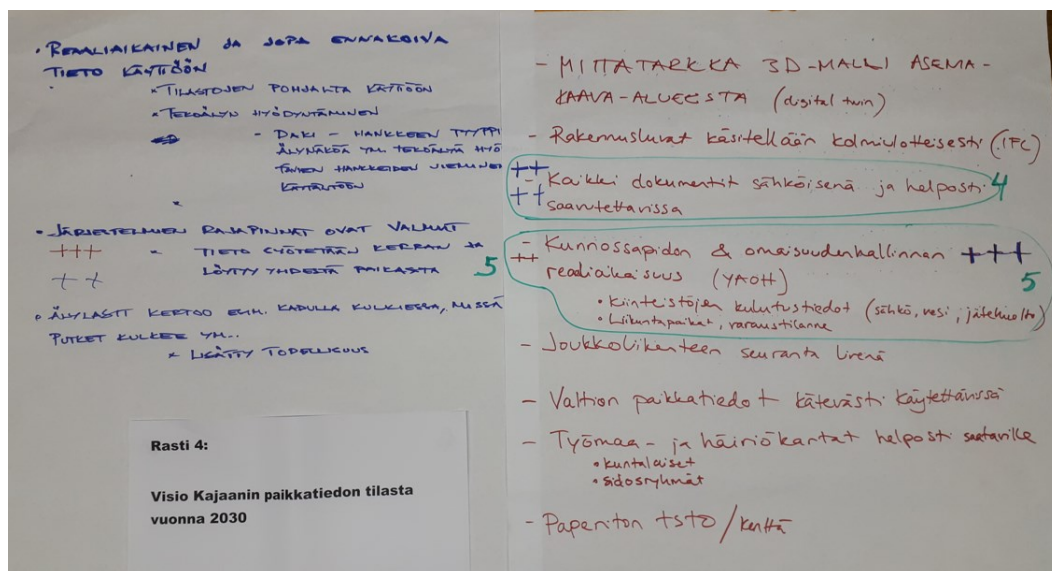 • REAALIAIKAINEN JA JOPA ENNAKOIVA
TIETO KÄYTTÖÖN
* TILASTOJEN POHJALTA KÄYTTÖÖN
* TEKOÄLYN HYÖDYNTÄMINEN
- DAKI - HANKKEEN TYYPPI
ÄLYNÄKÖÄ YM. TEKOÄLYÄ HYÖ
TÄVIEN HANKKEIDEN VIEMINEN
KÄYTÄNTÖÖN
• JÄRJESTELMIEN RAJAPINNAT OVAT VALMIIT
+++ * TIETO SYÖTETÄÄN KERRAN JA
++ LÖYTYY YHDESTÄ PAIKASTA 5
• ÄLYLASIT KERTOO ESIM. KADULLA KULKIESSA, MISSÄ
PUTKET KULKEE YM...
* LISÄTTY TODELLISUUS
Rasti 4:
Visio Kajaanin paikkatiedon tilasta
vuonna 2030
- MITTATARKKA 3D-MALLI ASEMA-
KAAVA-ALUEESTA (digital twin)
- Rakennusluvat käsitellään kolmiulotteisesti (IFC)
++ - Kaikki dokumentit sähköisenä ja helposti 4
++ saavutettavissa
- Kunnossapidon & omaisuudenhallinnan +++
++ reaaliaikaisuus (YAOH) 5
• Kiinteistöjen kulutustiedot (sähkö, vesi, jätehuolto)
• Liikuntapaikat, varaustilanne
- Joukkoliikenteen seuranta livenä
- Valtion paikkatiedot kätevästi käytettävissä
- Työmaa- ja häiriökartat helposti saataville
• kuntalaiset
• sidosryhmät
- Paperiton tsto / kenttä